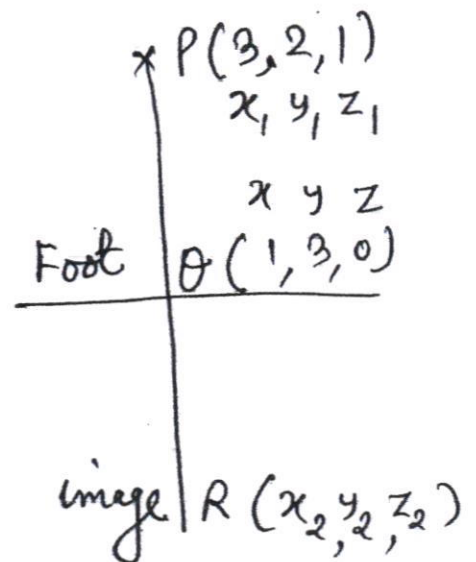 × P(3, 2, 1)
x₁ y₁ z₁
x y z
Foot Q(1, 3, 0)
image R (x₂, y₂, z₂)